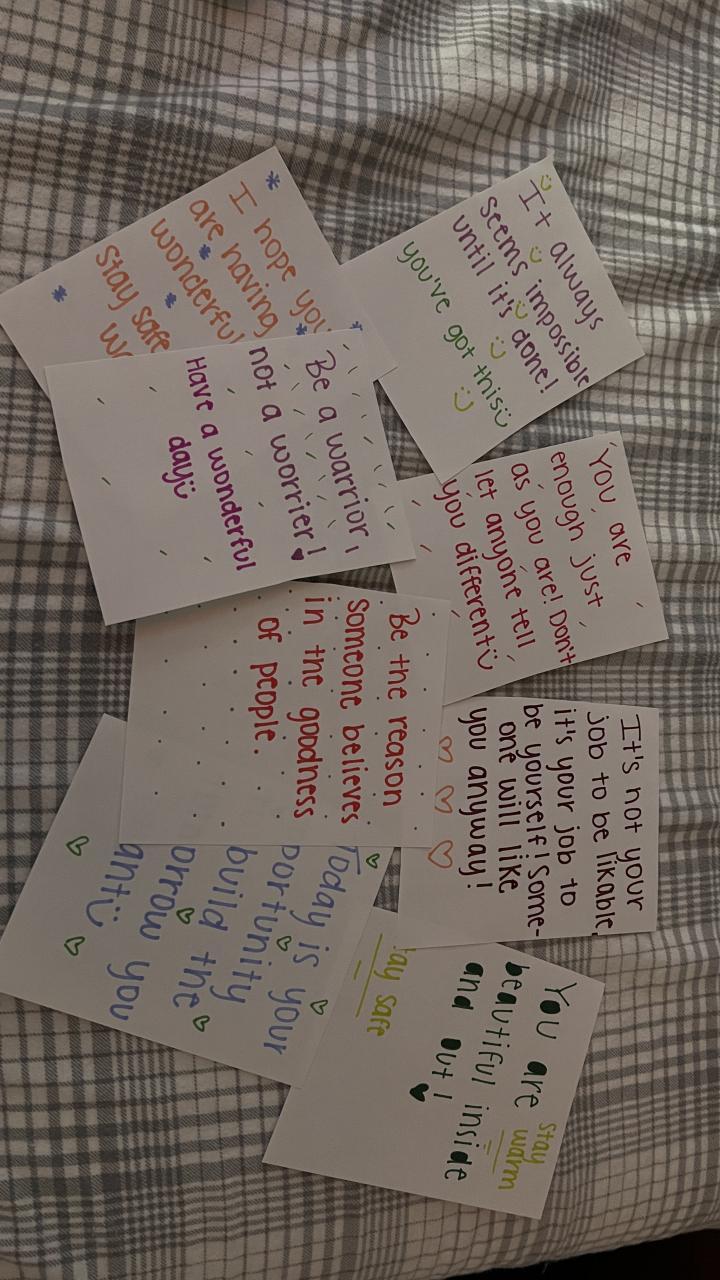 It always
seems impossible
until it's done!
you've got this
You are
enough just
as you are! Don't
let anyone tell
you different
It's not your
job to be likable,
it's your job to
be yourself! Some-
one will like
you anyway!
You are
beautiful inside
and out!
stay
warm
tay safe
I hope you
are having
wonderful
stay safe
Be a warrior,
not a worrier!
Have a wonderful
day
Be the reason
someone believes
in the goodness
of people.
Today is your
portunity
build the
orrow you
ant